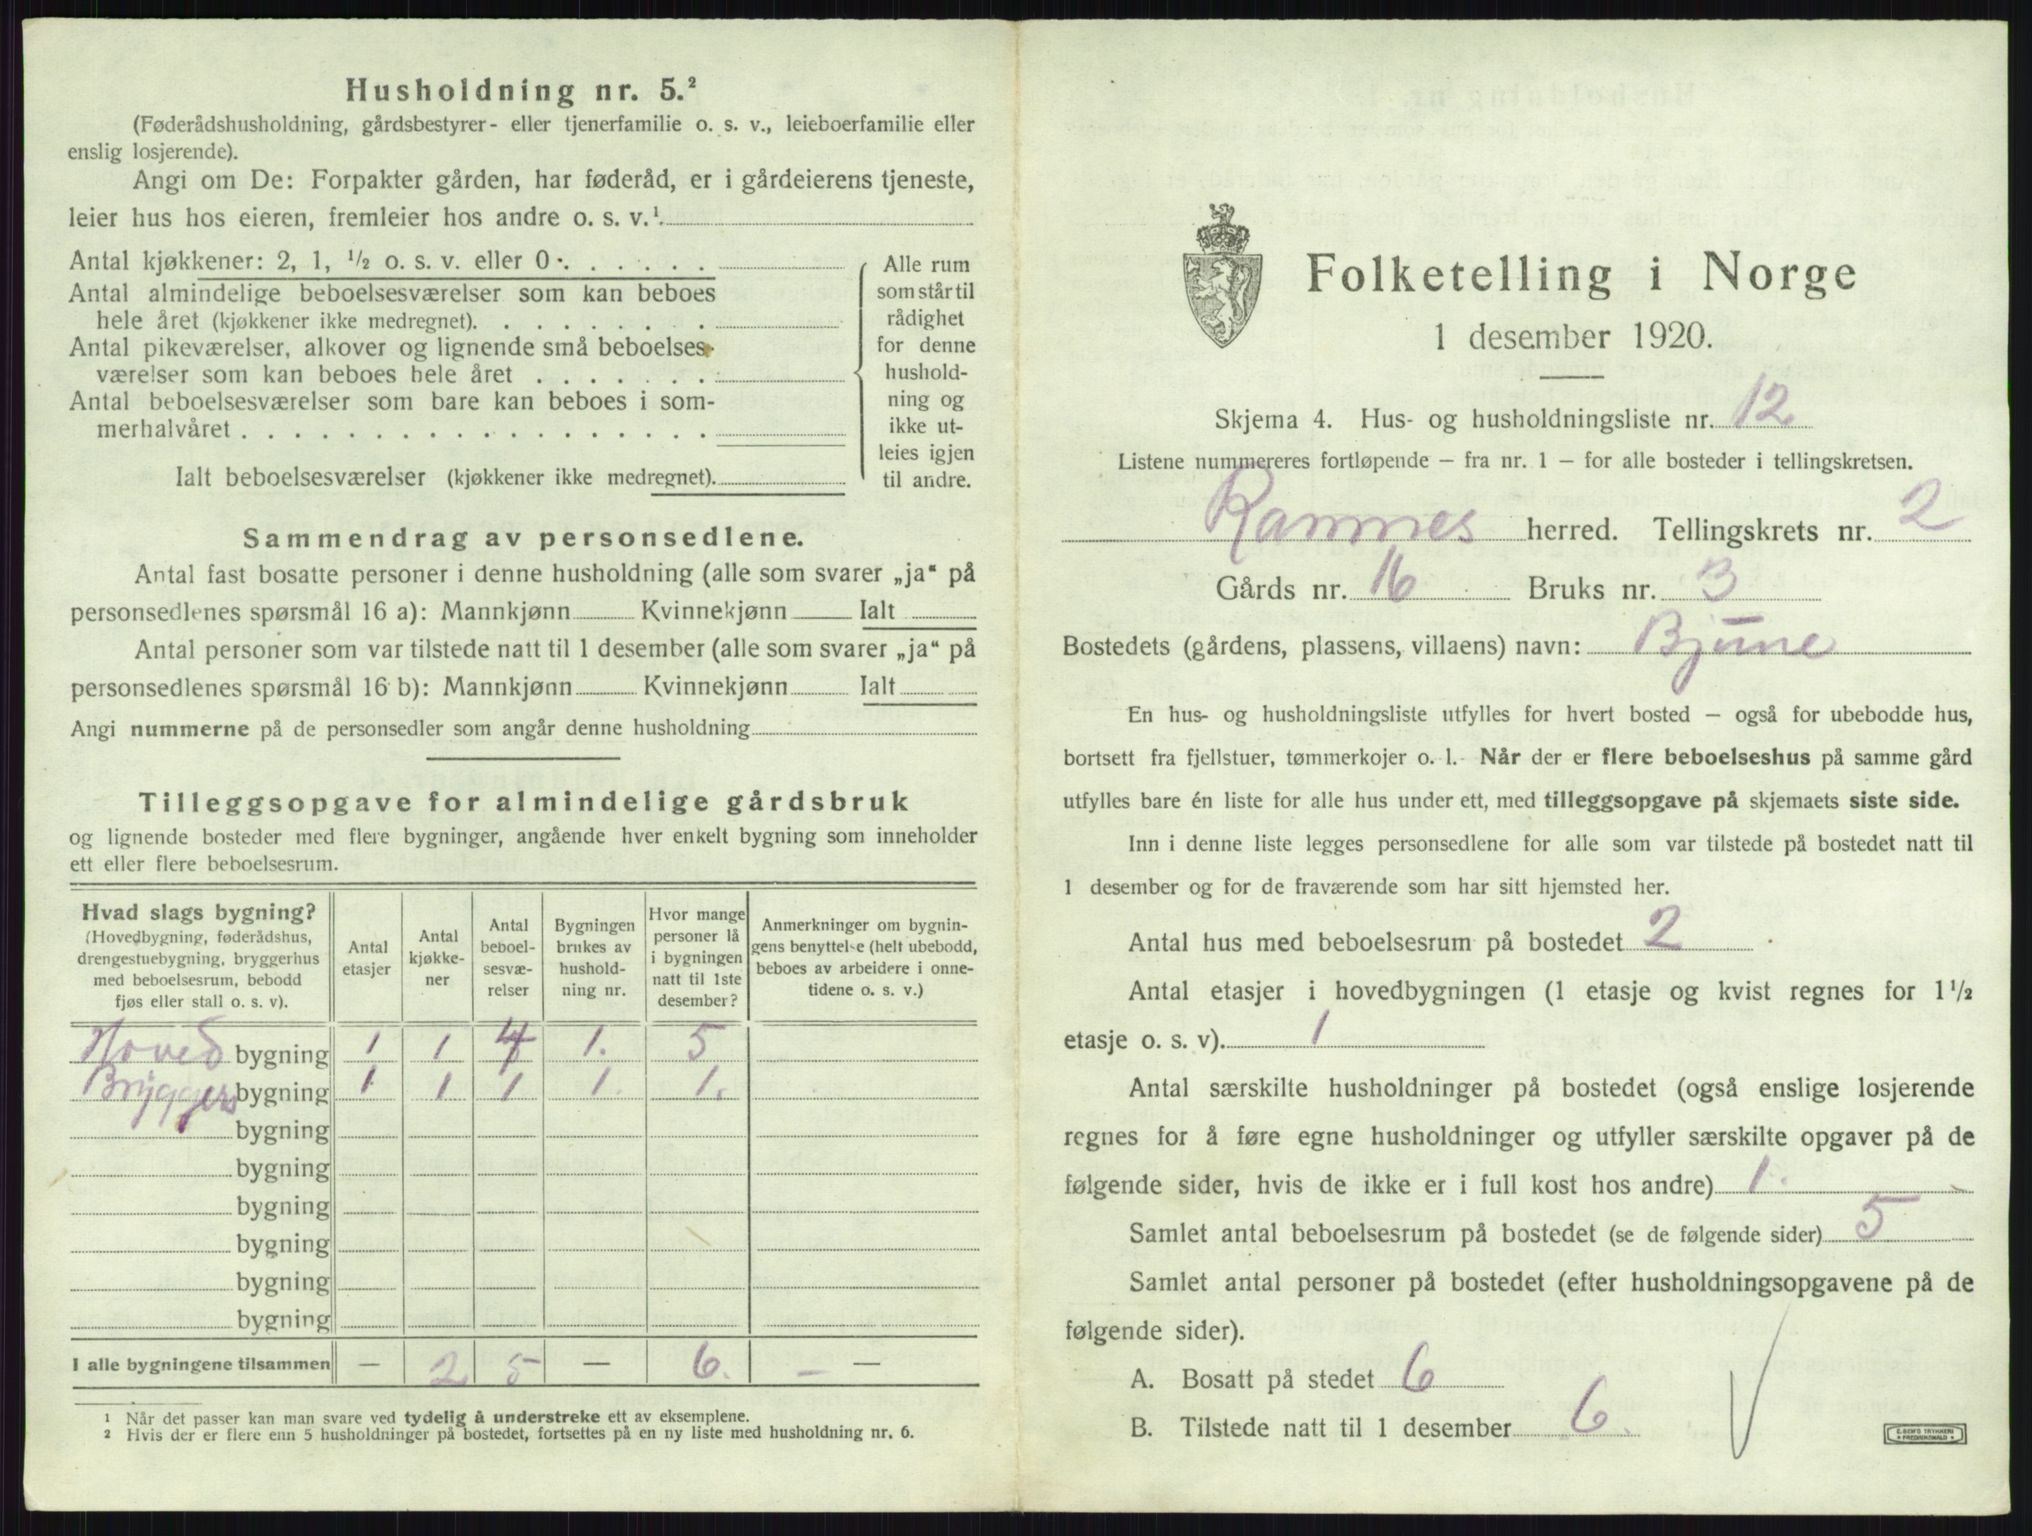 Husholdning nr. 5.²
(Føderådshusholdning, gårdsbestyrer- eller tjenerfamilie o. s. v., leieboerfamilie eller
enslig losjerende).
Angi om De: Forpakter gården, har føderåd, er i gårdeierens tjeneste,
leier hus hos eieren, fremleier hos andre o. s. v.¹
Antal kjøkkener: 2, 1, ½ o. s. v. eller 0
Antal almindelige beboelsesværelser som kan beboes
hele året (kjøkkener ikke medregnet).
Antal pikeværelser, alkover og lignende små beboelses-
værelser som kan beboes hele året
Antal beboelsesværelser som bare kan beboes i som-
merhalvåret
Ialt beboelsesværelser (kjøkkener ikke medregnet).
Alle rum
som står til
rådighet
for denne
hushold-
ning og
ikke ut-
leies igjen
til andre.
Sammendrag av personsedlene.
Antal fast bosatte personer i denne husholdning (alle som svarer „ja“ på
personsedlenes spørsmål 16 a): Mannkjønn Kvinnekjønn Ialt
Antal personer som var tilstede natt til 1 desember (alle som svarer „ja“ på
personsedlenes spørsmål 16 b): Mannkjønn Kvinnekjønn Ialt
Angi nummerne på de personsedler som angår denne husholdning
Tilleggsopgave for almindelige gårdsbruk
og lignende bosteder med flere bygninger, angående hver enkelt bygning som inneholder
ett eller flere beboelsesrum.
Hvad slags bygning?
(Hovedbygning, føderådshus,
drengestuebygning, bryggerhus
med beboelsesrum, bebodd
fjøs eller stall o. s. v).
Antal
etasjer
Antal
kjøkke-
ner
Antal
beboel-
sesvæ-
relser
Bygningen
brukes av
hushold-
ning nr.
Hvor mange
personer lå
i bygningen
natt til 1ste
desember?
Anmerkninger om bygnin-
gens benyttelse (helt ubebodd,
beboes av arbeidere i onne-
tidene o. s. v.)
Hoved bygning 1 1 4 1. 5
Bryggers bygning 1 1 1 1. 1.
bygning
bygning
bygning
bygning
bygning
bygning
I alle bygningene tilsammen — 2 5 — 6. —
1 Når det passer kan man svare ved tydelig å understreke ett av eksemplene.
2 Hvis der er flere enn 5 husholdninger på bostedet, fortsettes på en ny liste med husholdning nr. 6.
Folketelling i Norge
1 desember 1920.
Skjema 4. Hus- og husholdningsliste nr. 12
Listene nummereres fortløpende — fra nr. 1 — for alle bosteder i tellingskretsen.
Ramnes herred. Tellingskrets nr. 2
Gårds nr. 16 Bruks nr. 3
Bostedets (gårdens, plassens, villaens) navn: Bjune
En hus- og husholdningsliste utfylles for hvert bosted — også for ubebodde hus,
bortsett fra fjellstuer, tømmerkojer o. l. Når der er flere beboelseshus på samme gård
utfylles bare én liste for alle hus under ett, med tilleggsopgave på skjemaets siste side.
Inn i denne liste legges personsedlene for alle som var tilstede på bostedet natt til
1 desember og for de fraværende som har sitt hjemsted her.
Antal hus med beboelsesrum på bostedet 2
Antal etasjer i hovedbygningen (1 etasje og kvist regnes for 1½
etasje o. s. v). 1
Antal særskilte husholdninger på bostedet (også enslige losjerende
regnes for å føre egne husholdninger og utfyller særskilte opgaver på de
følgende sider, hvis de ikke er i full kost hos andre) 1.
Samlet antal beboelsesrum på bostedet (se de følgende sider) 5
Samlet antal personer på bostedet (efter husholdningsopgavene på de
følgende sider).
A. Bosatt på stedet 6
B. Tilstede natt til 1 desember 6.